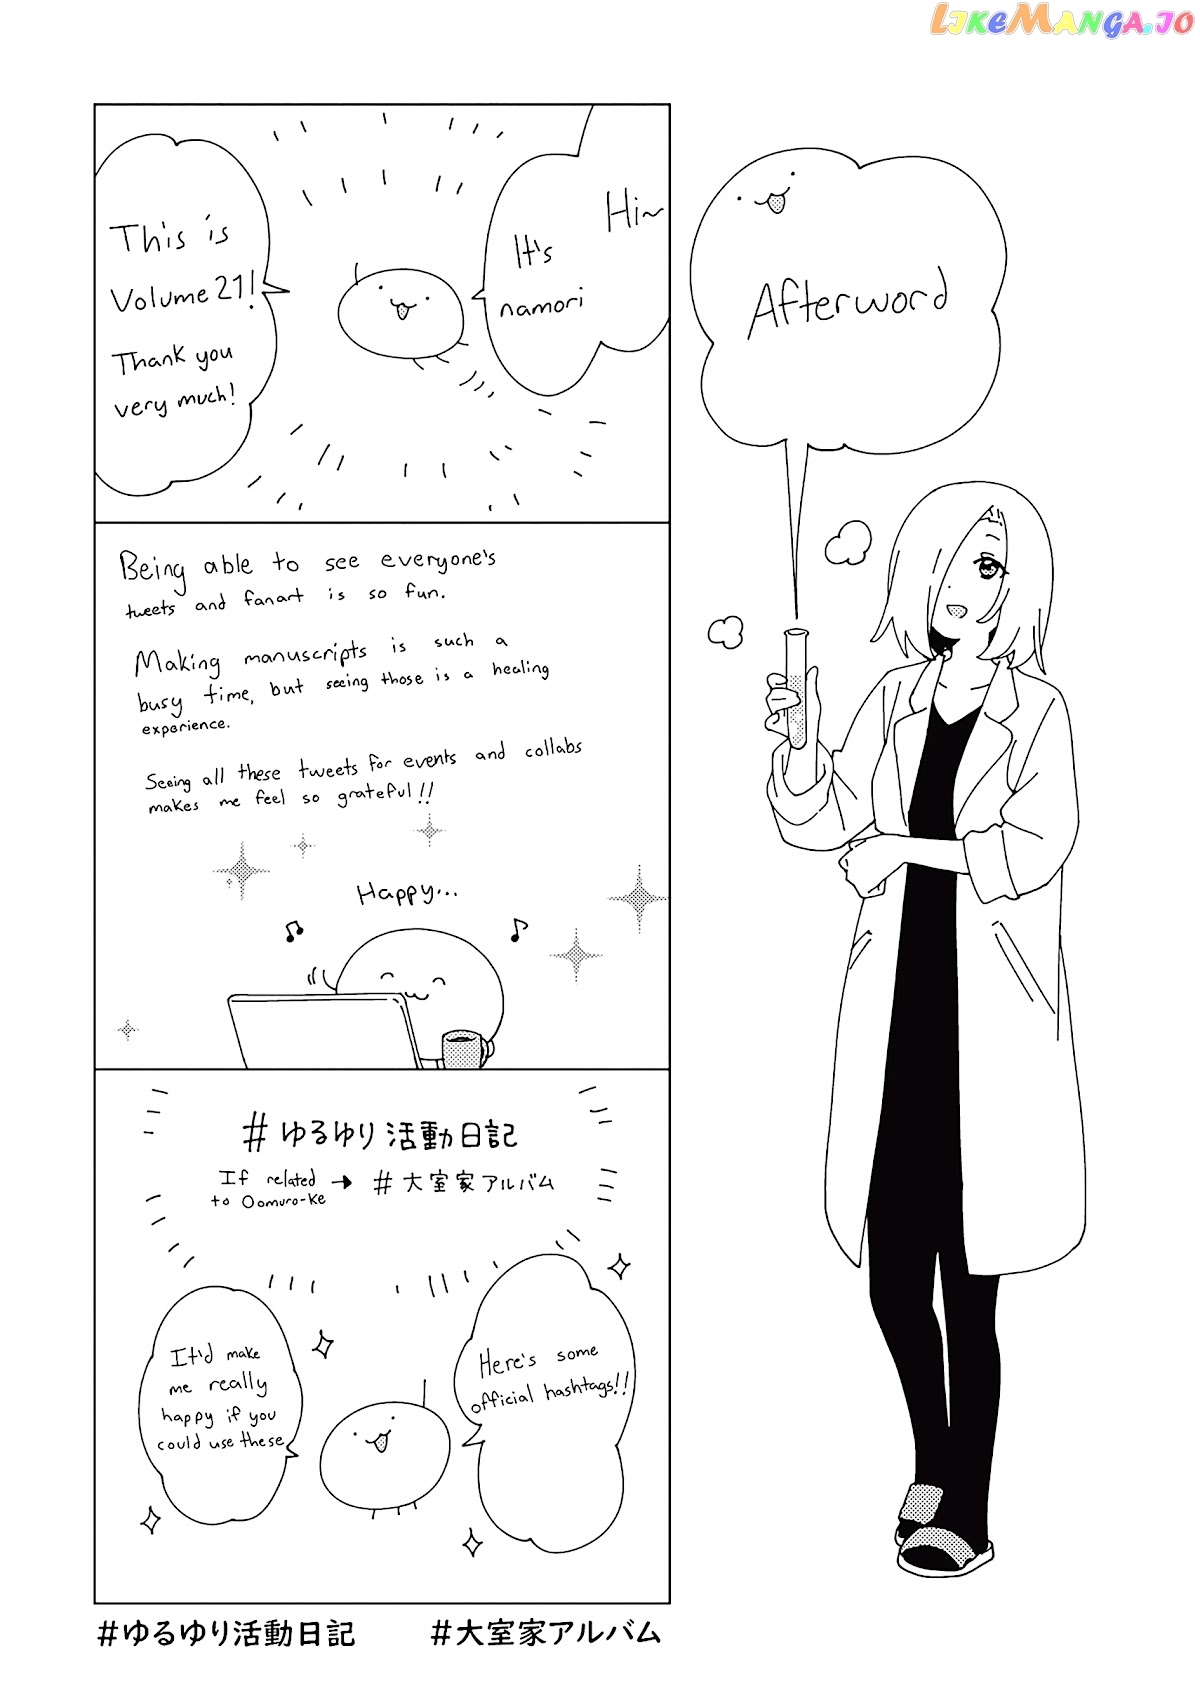 LIKEMANGA.IO
Afterword
Hi~
It's
namori
This is
Volume 21!
Thank you
very much!
Being able to see everyone's
tweets and fanart is so fun.
Making manuscripts is such a
busy time, but seeing those is a healing
experience.
Seeing all these tweets for events and collabs
makes me feel so grateful!!
Happy...
#ゆるゆり活動日記
If related
to Oomuro-Ke
→ #大室家アルバム
Here's some
official hashtags!!
It'd make
me really
happy if you
could use these
#ゆるゆり活動日記
#大室家アルバム